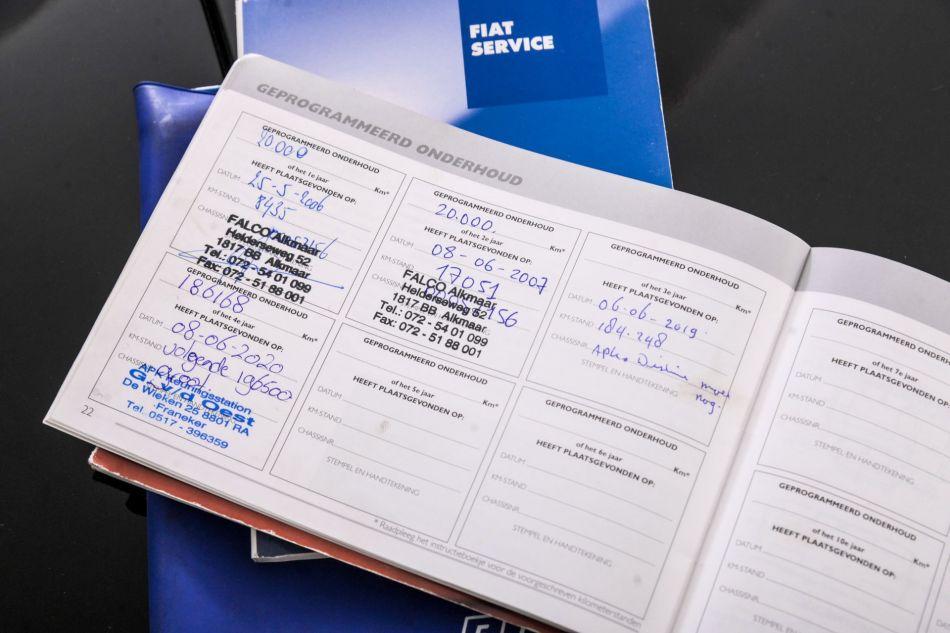 FIAT
SERVICE
GEPROGRAMMEERD ONDERHOUD
GEPROGRAMMEERD ONDERHOUD
20.000
of het 1e jaar Km*
HEEFT PLAATSGEVONDEN OP:
DATUM 25-5-2006
KM-STAND 8435
CHASSISNR.
FALCO Alkmaar
Helderseweg 52
1817 BB Alkmaar
Tel.: 072 - 54 01 099
Fax: 072 - 51 88 001
GEPROGRAMMEERD ONDERHOUD
20.000.
of het 2e jaar Km*
HEEFT PLAATSGEVONDEN OP:
DATUM 08-06-2007
KM-STAND 17051
CHASSISNR.
FALCO Alkmaar
Helderseweg 52
1817 BB Alkmaar
Tel.: 072 - 54 01 099
Fax: 072 - 51 88 001
GEPROGRAMMEERD ONDERHOUD
of het 3e jaar Km*
HEEFT PLAATSGEVONDEN OP:
DATUM 06-06-2019.
KM-STAND 184.248
CHASSISNR. Apk
moet
nog.
STEMPEL EN HANDTEKENING
GEPROGRAMMEERD ONDERHOUD
186168
of het 4e jaar Km*
HEEFT PLAATSGEVONDEN OP:
DATUM 08-06-2020
KM-STAND volgende 196500
CHASSISNR.
APK Keuringsstation
G. v/d Oest
De Wieken 25 8801 RA
Franeker
Tel. 0517 - 396359
GEPROGRAMMEERD ONDERHOUD
of het 5e jaar Km*
HEEFT PLAATSGEVONDEN OP:
DATUM
KM-STAND
CHASSISNR.
STEMPEL EN HANDTEKENING
GEPROGRAMMEERD ONDERHOUD
of het 6e jaar Km*
HEEFT PLAATSGEVONDEN OP:
DATUM
KM-STAND
CHASSISNR.
STEMPEL EN HANDTEKENING
22
* Raadpleeg het instructieboekje voor de voorgeschreven kilometerstanden
GEPROGRAMMEERD
of het 7e jaar
HEEFT PLAATSGEVONDEN
DATUM
KM-STAND
CHASSISNR.
STEMPEL EN HANDTEKENING
GEPROGRAMMEERD ONDERHOUD
of het 10e jaar Km*
HEEFT PLAATSGEVONDEN OP:
DATUM
KM-STAND
CHASSISNR.
STEMPEL EN HANDTEKENING